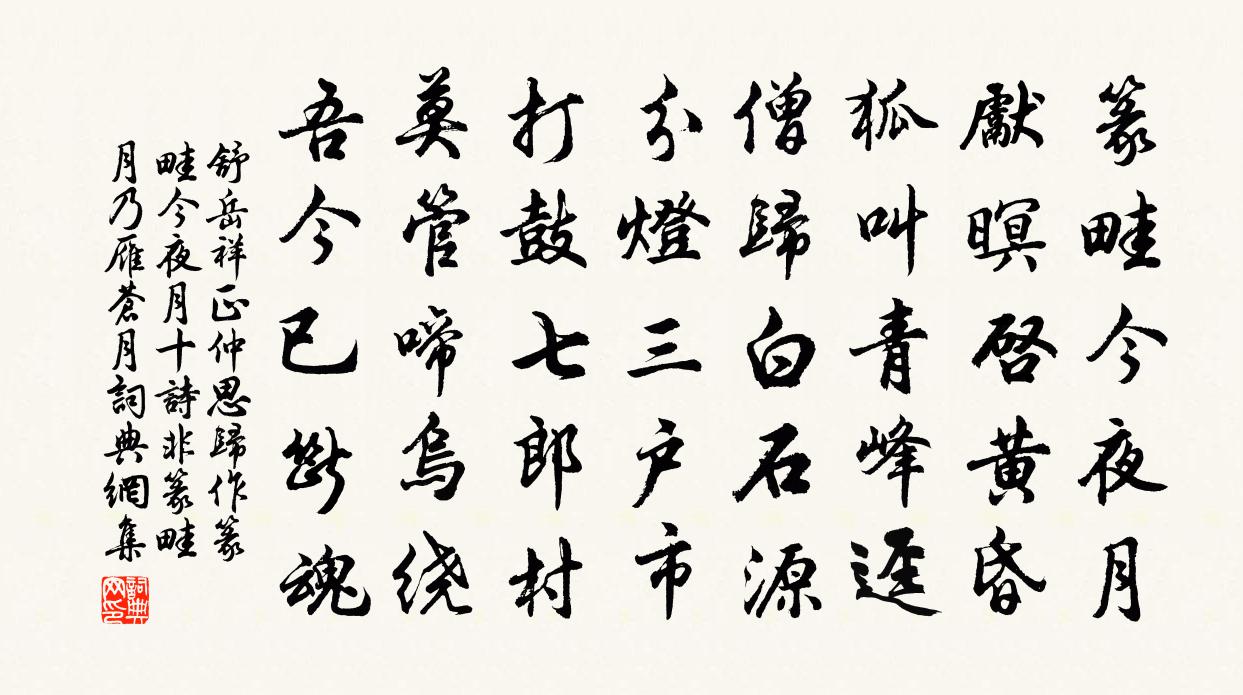 篆畦今夜月
獻暝啓黃昏
狐叫青峰逕
僧歸白石源
分燈三户市
打鼓七郎村
莫管啼烏绕
吾今已斷魂
舒岳祥正仲思歸作篆
畦今夜月十詩非篆畦
月乃雁蒼月詞典網集
詞典網印